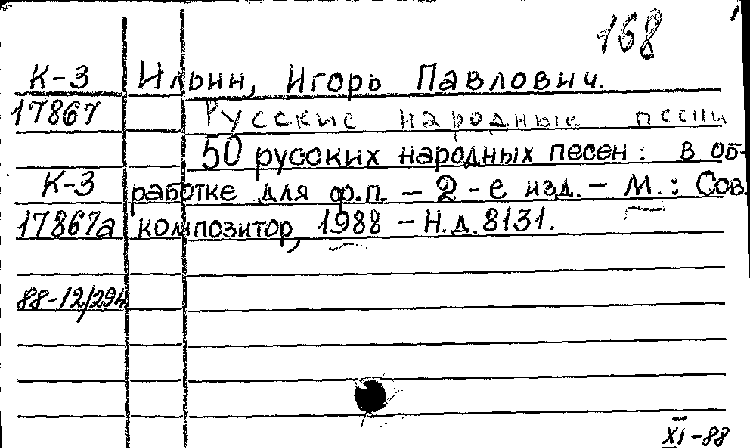 168
К-3 Ильин, Игорь Павлович.
17867 Русские народные песни
50 русских народных песен: в об-
К-3 работке для ф.п. - 2-е изд. - М.: Сов.
17867а композитор, 1988 - Н.д. 8131.
88-12/294
XI-88